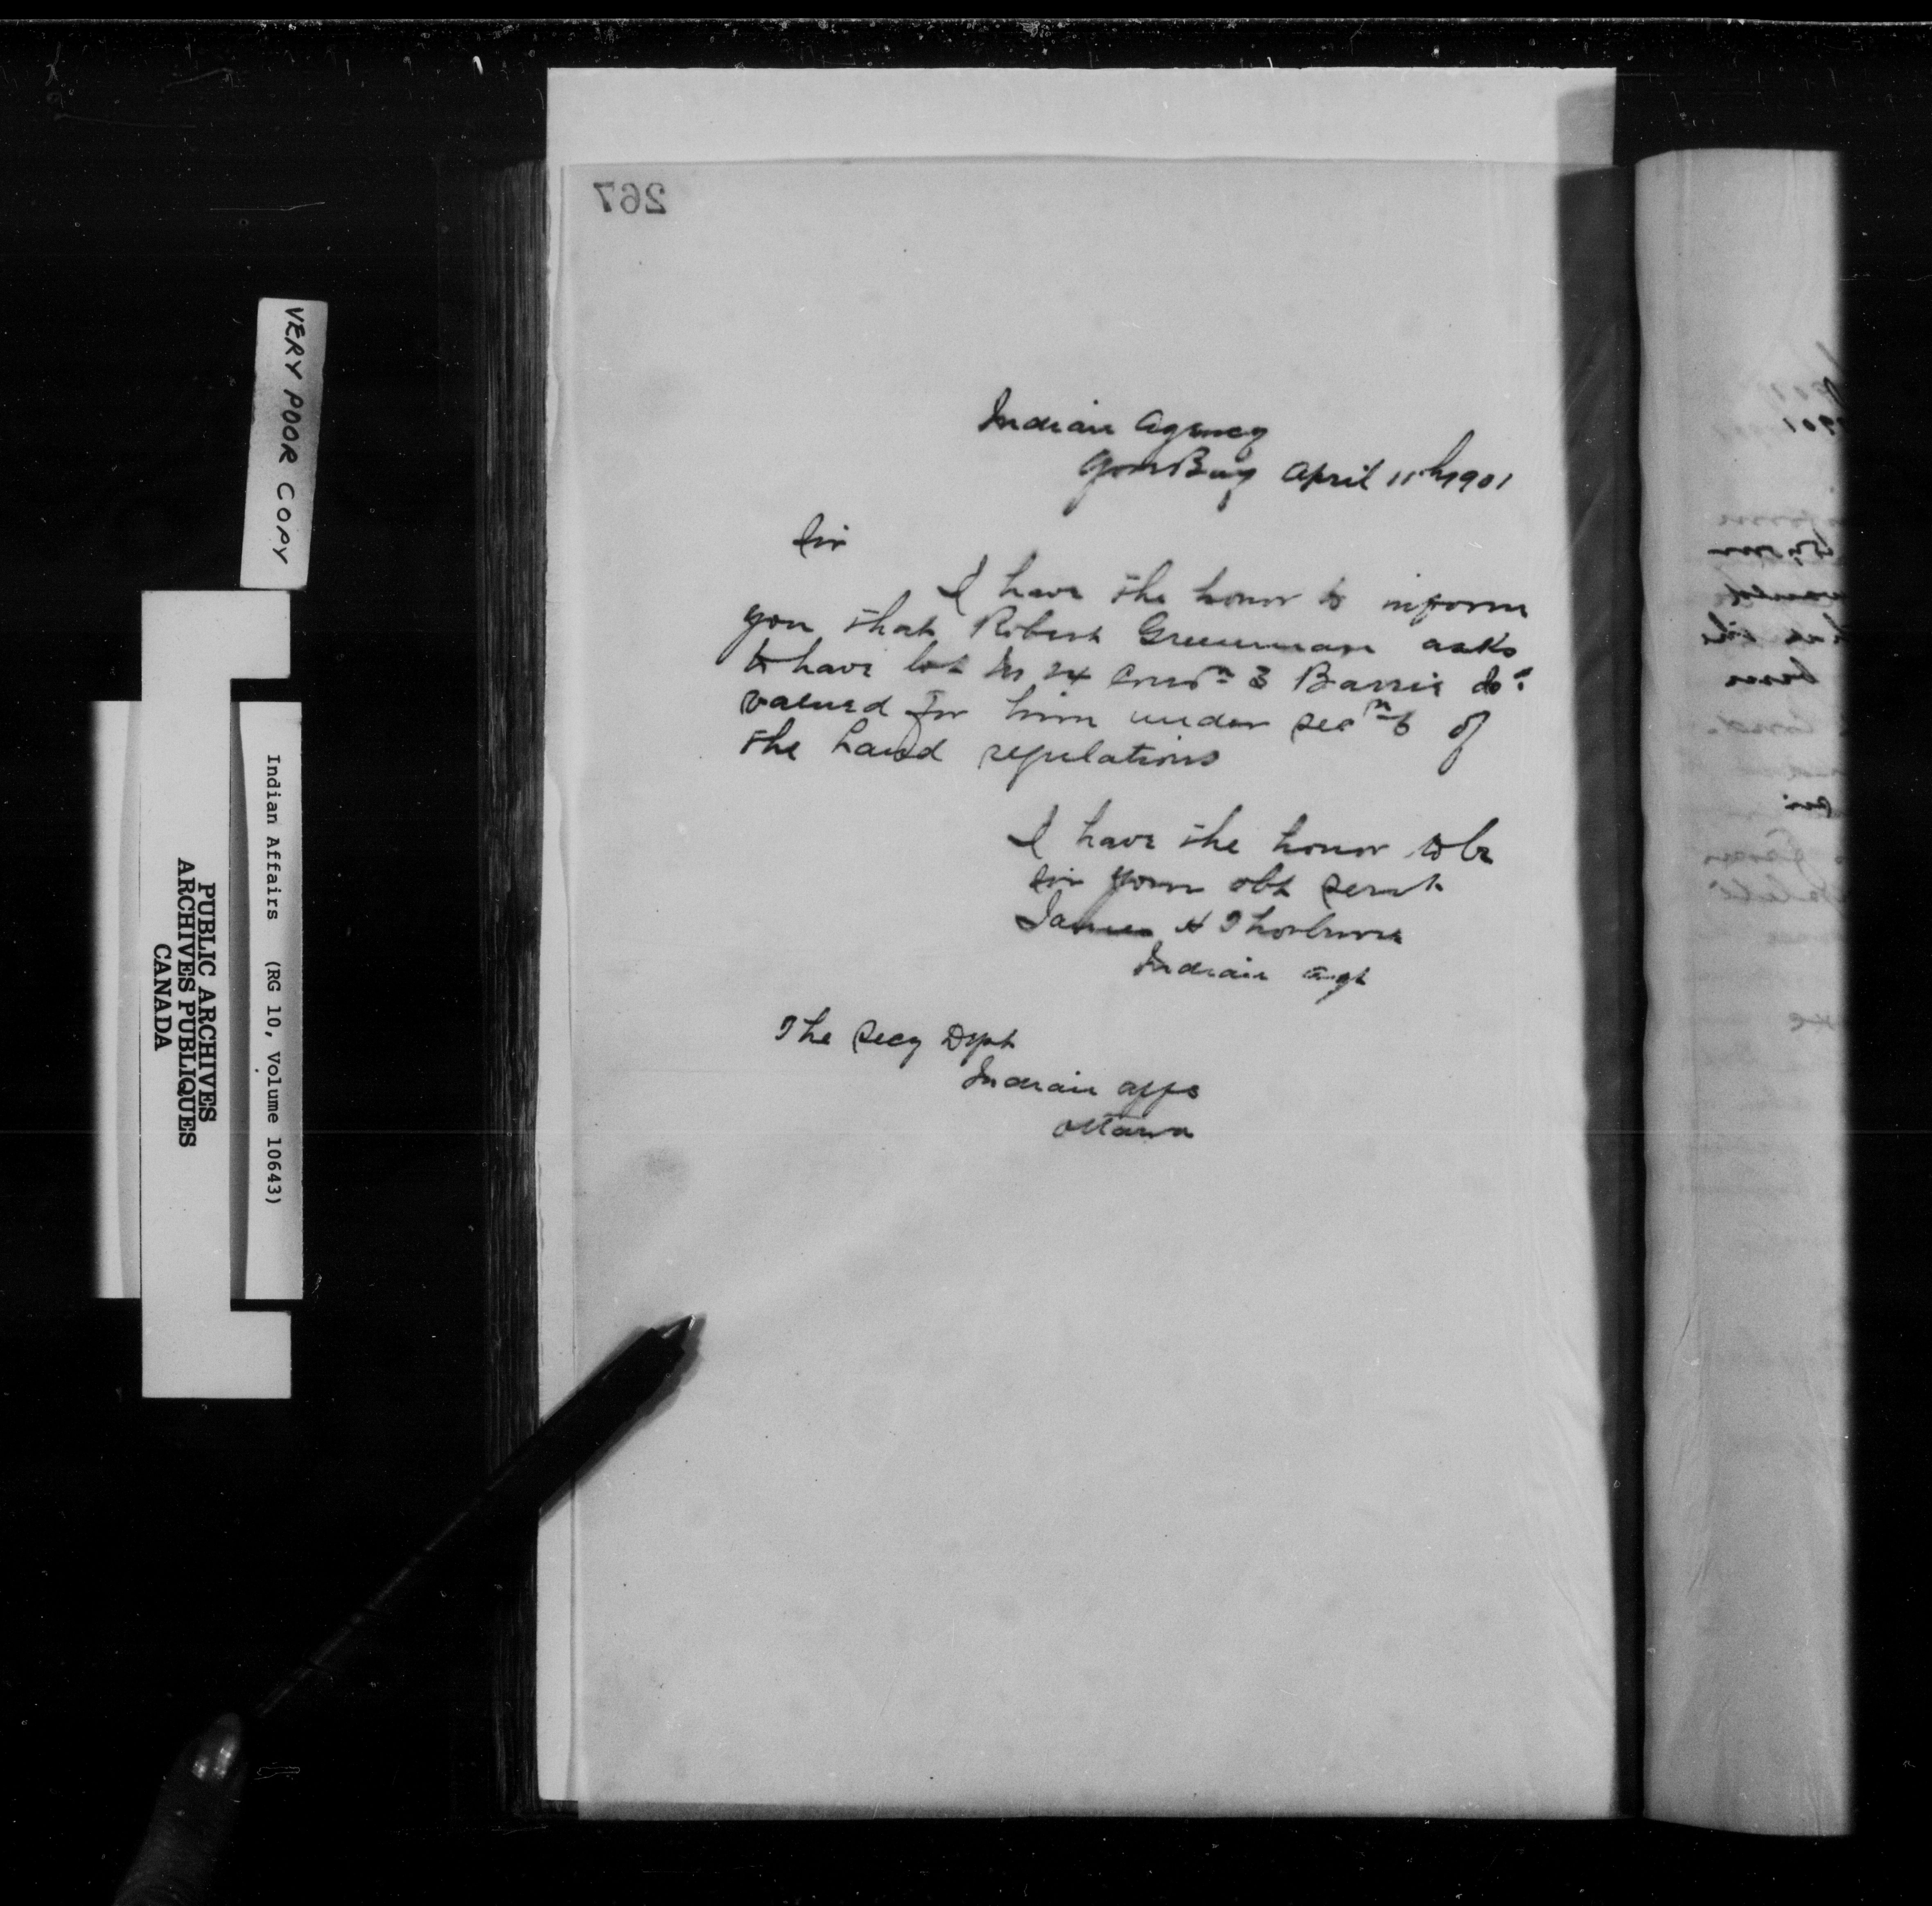 267
Indian Agency
Gore Bay April 11th 1901
Sir
I have the honor to inform
you that Robert Greenman asks
to have lot No 24 Consn 3 Barrie Isd
valued for him under secn 6 of
the Land regulations
I have the honor to be
Sir your obt servt
James H Thorburn
Indian Agt
The Secy Dept
Indian Affs
Ottawa
VERY POOR COPY
Indian Affairs (RG 10, Volume 10643)
PUBLIC ARCHIVES
ARCHIVES PUBLIQUES
CANADA